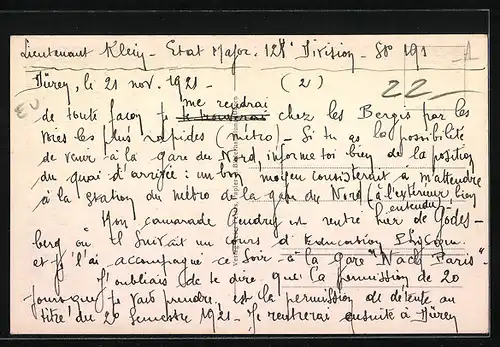 Lieutenant Klein - Etat Major. 128e Division - SP 191
Düren, le 21 nov. 1921 - (2) 22
me rendrai
de toute façon je chez les Bergis par les
voies les plus rapides (métro) - Si tu as la possibilité
de venir à la gare du Nord, informe toi bien de la position
du quai d'arrivée : un bon moyen consisterait à m'attendre
à la station du métro de la gare du Nord (à l'extérieur, bien
entendu)
Mon camarade est rentré hier de Godes-
berg où il suivait un cours d'Education Physique
et je l'ai accompagné ce soir à la Gare "Nach Paris"
J'oubliais de te dire que la permission de 20
jours que je vais prendre est la permission de détente au
titre du 2e semestre 1921 - Je rentrerai ensuite à Düren